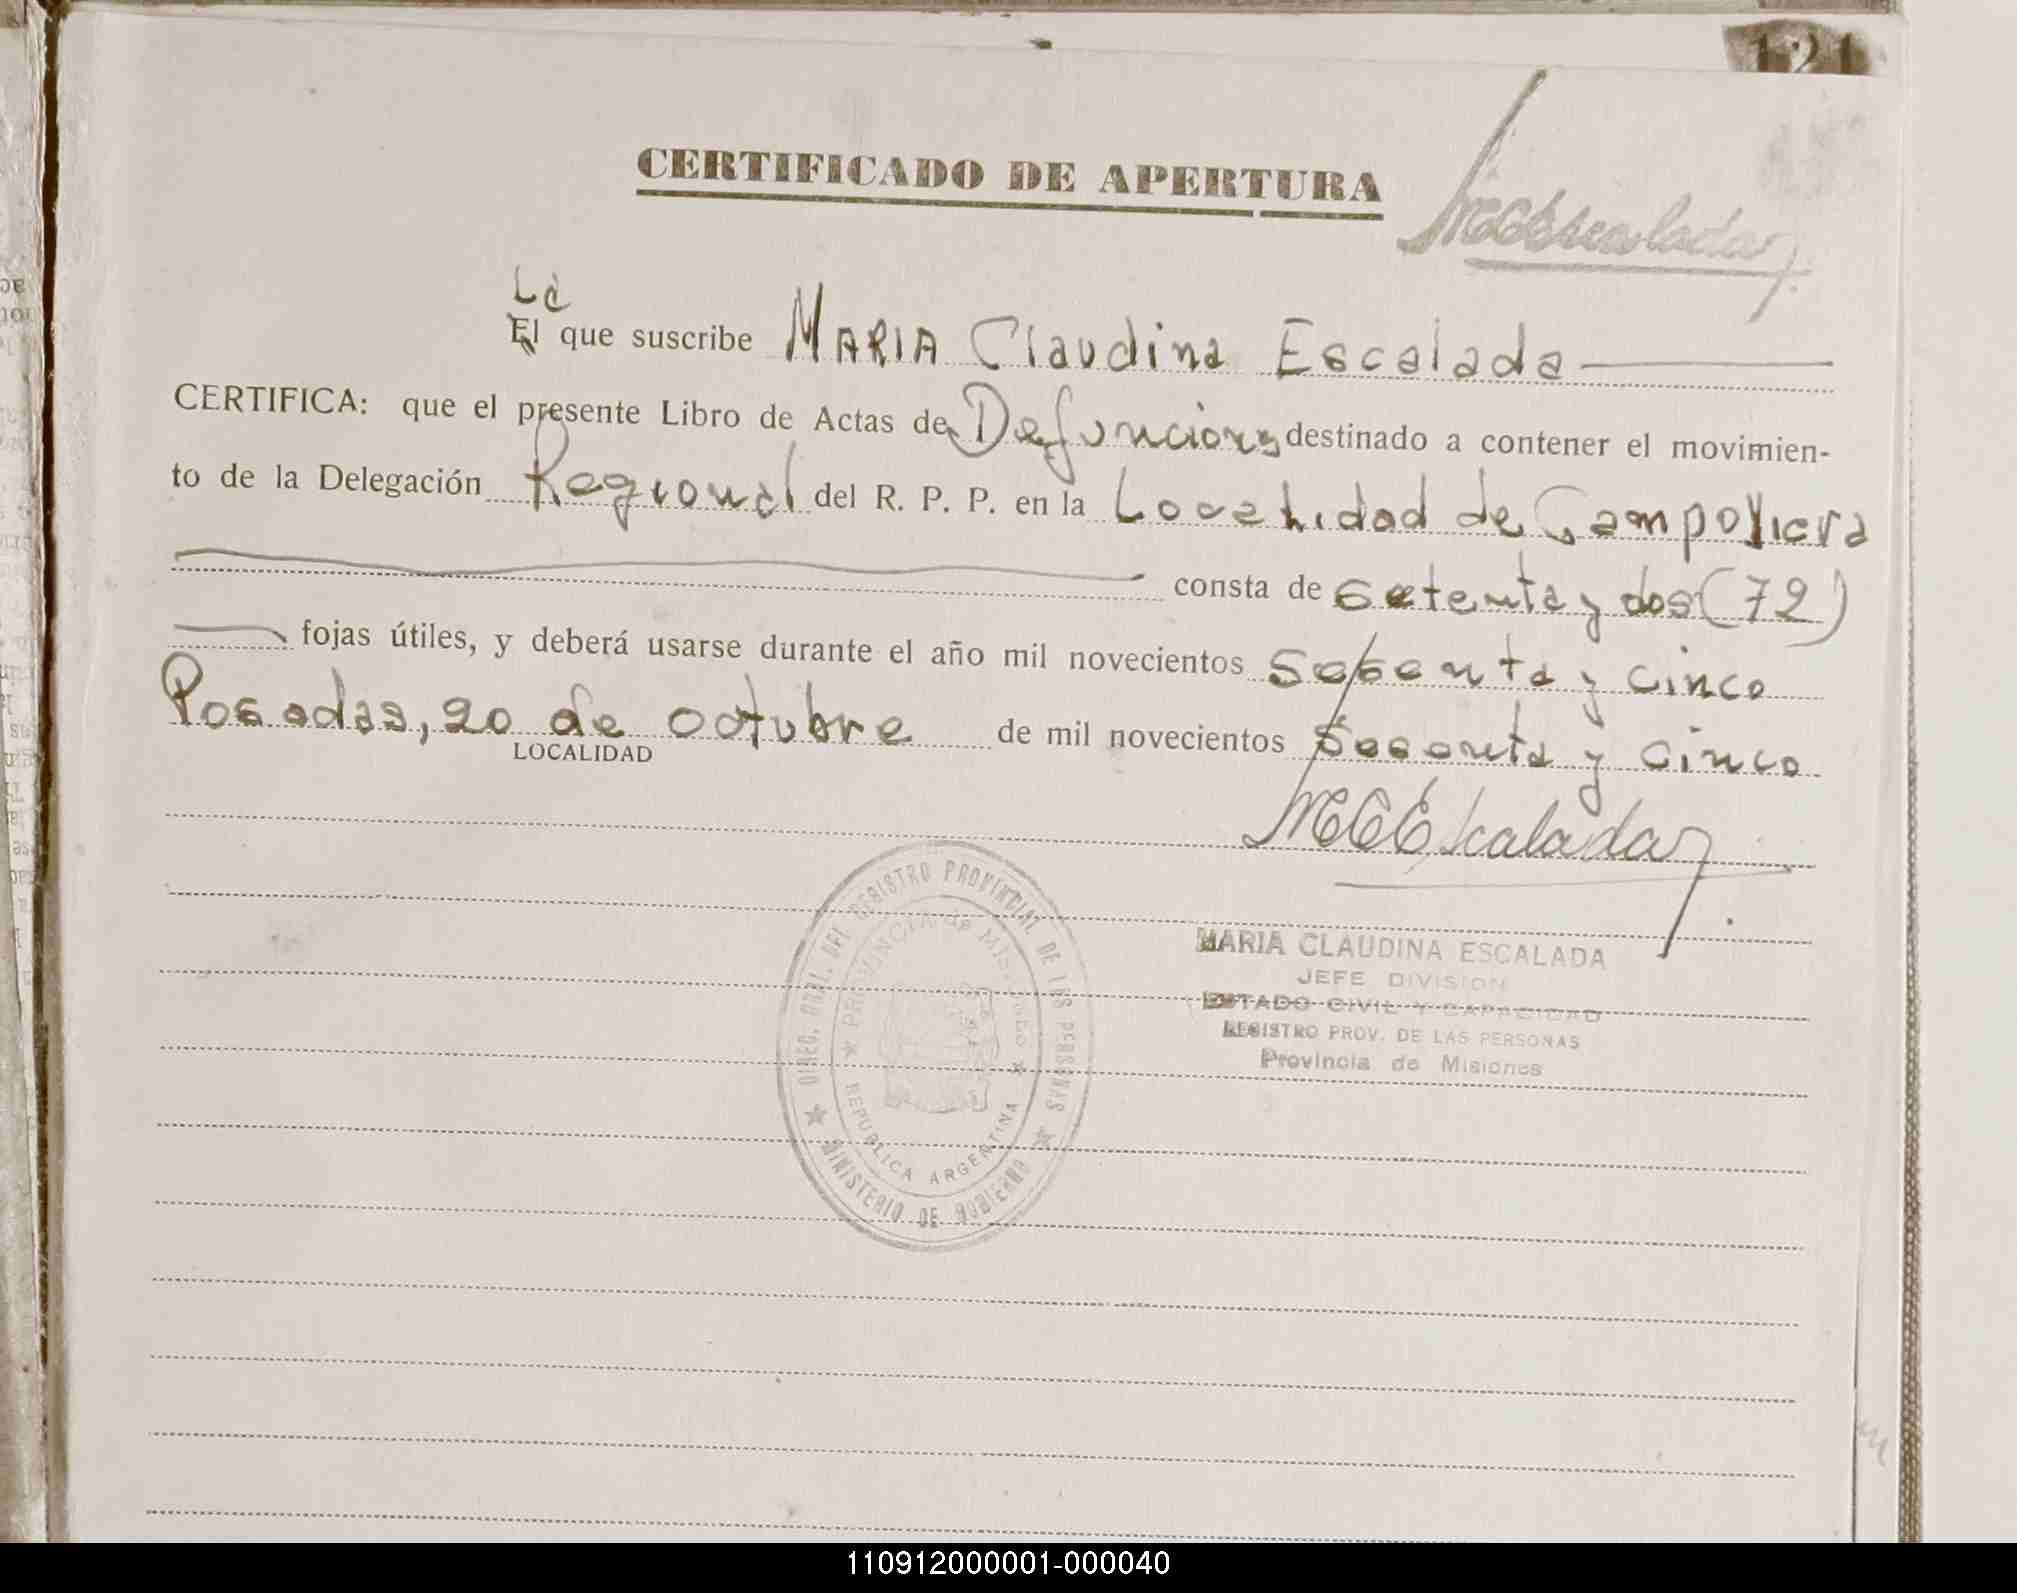 121
MCEscalada
CERTIFICADO DE APERTURA
La
El que suscribe MARIA Claudina Escalada
CERTIFICA: que el presente Libro de Actas de Defunciones destinado a contener el movimien-
to de la Delegación Regional del R. P. P. en la Localidad de Campo Viera
consta de setenta y dos (72)
fojas útiles, y deberá usarse durante el año mil novecientos sesenta y cinco
Posadas, 20 de octubre de mil novecientos sesenta y cinco
LOCALIDAD
MCEscalada
DIREC. GRAL. DEL REGISTRO PROVINCIAL DE LAS PERSONAS
PROVINCIA DE MISIONES
REPUBLICA ARGENTINA
MINISTERIO DE GOBIERNO
MARIA CLAUDINA ESCALADA
JEFE DIVISION
ESTADO CIVIL Y CAPACIDAD
REGISTRO PROV. DE LAS PERSONAS
Provincia de Misiones
110912000001-000040